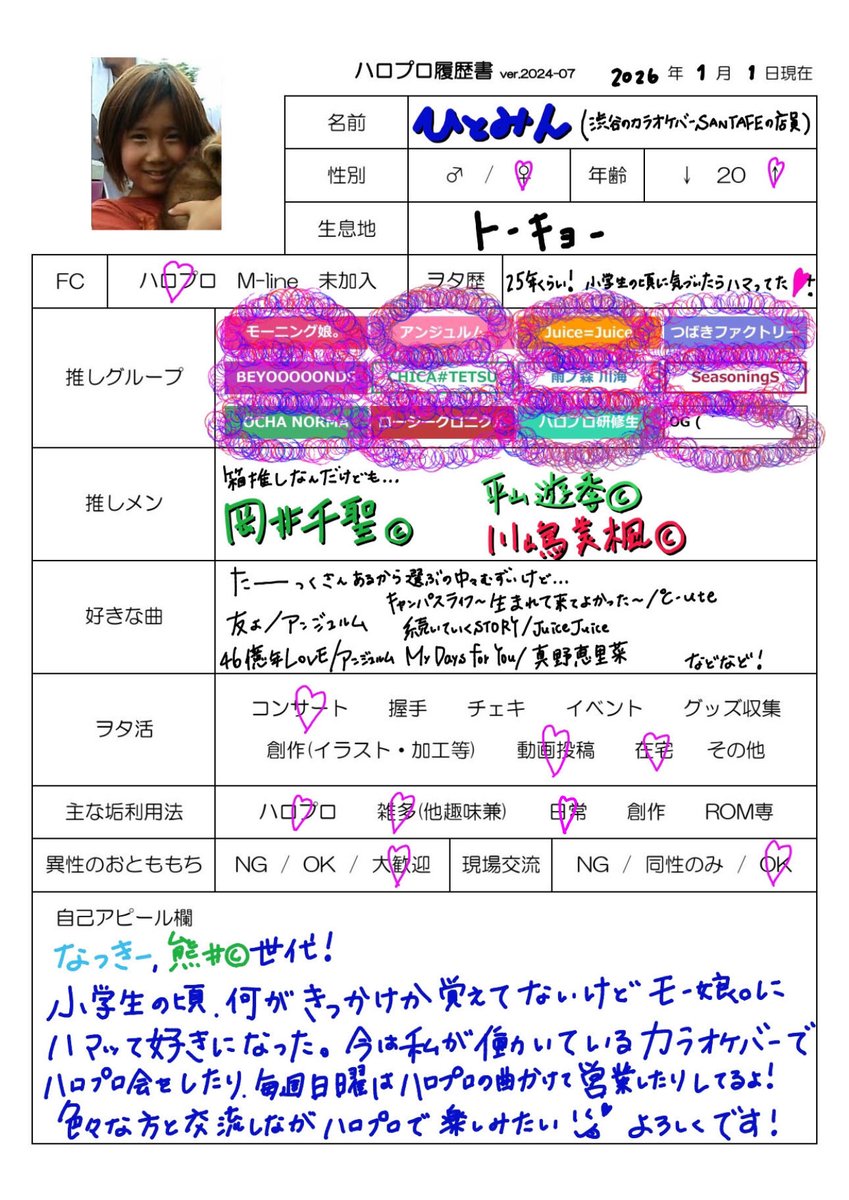 ハロプロ履歴書 ver.2024-07 2026 年 1 月 1 日現在
名前 ひとみん (渋谷のカラオケバーSANTAFEの店員)
性別 ♂ / ♀ 年齢 ↓ 20 ↑
生息地 トーキョー
FC ハロプロ M-line 未加入 ヲタ歴 25年くらい! 小学生の頃に気づいたらハマってた!
推しグループ
モーニング娘。 アンジュルム Juice=Juice つばきファクトリー
BEYOOOOONDS CHICA#TETSU 雨ノ森 川海 SeasoningS
OCHA NORMA ロージークロニクル ハロプロ研修生 OG ( )
推しメン
箱推しなんだけども...
岡井千聖© 平山遊季©
川嶋美楓©
好きな曲
たーーっくさんあるから選ぶの中々むずいけど...
キャンパスライフ〜生まれて来てよかった〜/℃-ute
友よ/アンジュルム 続いていくSTORY/Juice Juice
46億年LOVE/アンジュルム My Days for You/真野恵里菜 などなど!
ヲタ活
コンサート 握手 チェキ イベント グッズ収集
創作(イラスト・加工等) 動画投稿 在宅 その他
主な垢利用法 ハロプロ 雑多(他趣味兼) 日常 創作 ROM専
異性のおとももち NG / OK / 大歓迎 現場交流 NG / 同性のみ / OK
自己アピール欄
なっきー,熊井©世代!
小学生の頃、何がきっかけか覚えてないけどモー娘。に
ハマって好きになった。今は私が働いているカラオケバーで
ハロプロ会をしたり、毎週日曜はハロプロの曲かけて営業したりしてるよ!
色々な方と交流しながハロプロで楽しみたい! よろしくです!